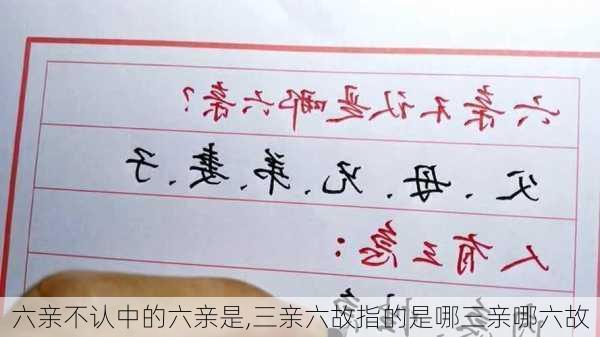 六亲不认是哪六亲?
父、母、兄、弟、妻、子
人有三急:
六亲不认中的六亲是,三亲六故指的是哪三亲哪六故